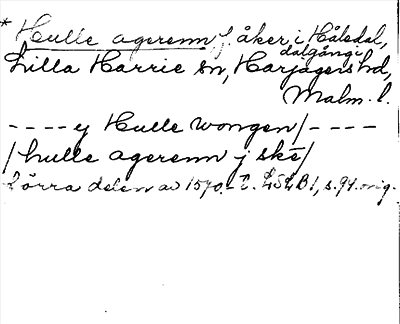 * Hulle agerenn f. åker i Håledal,
dalgång i
Lilla Harrie sn, Harjagers hd,
Malm. l.
---- ey Hulle wongen/----
/hulle agerenn j skē/
Lörra delen av 1570. - LSLB1, s. 94. orig.